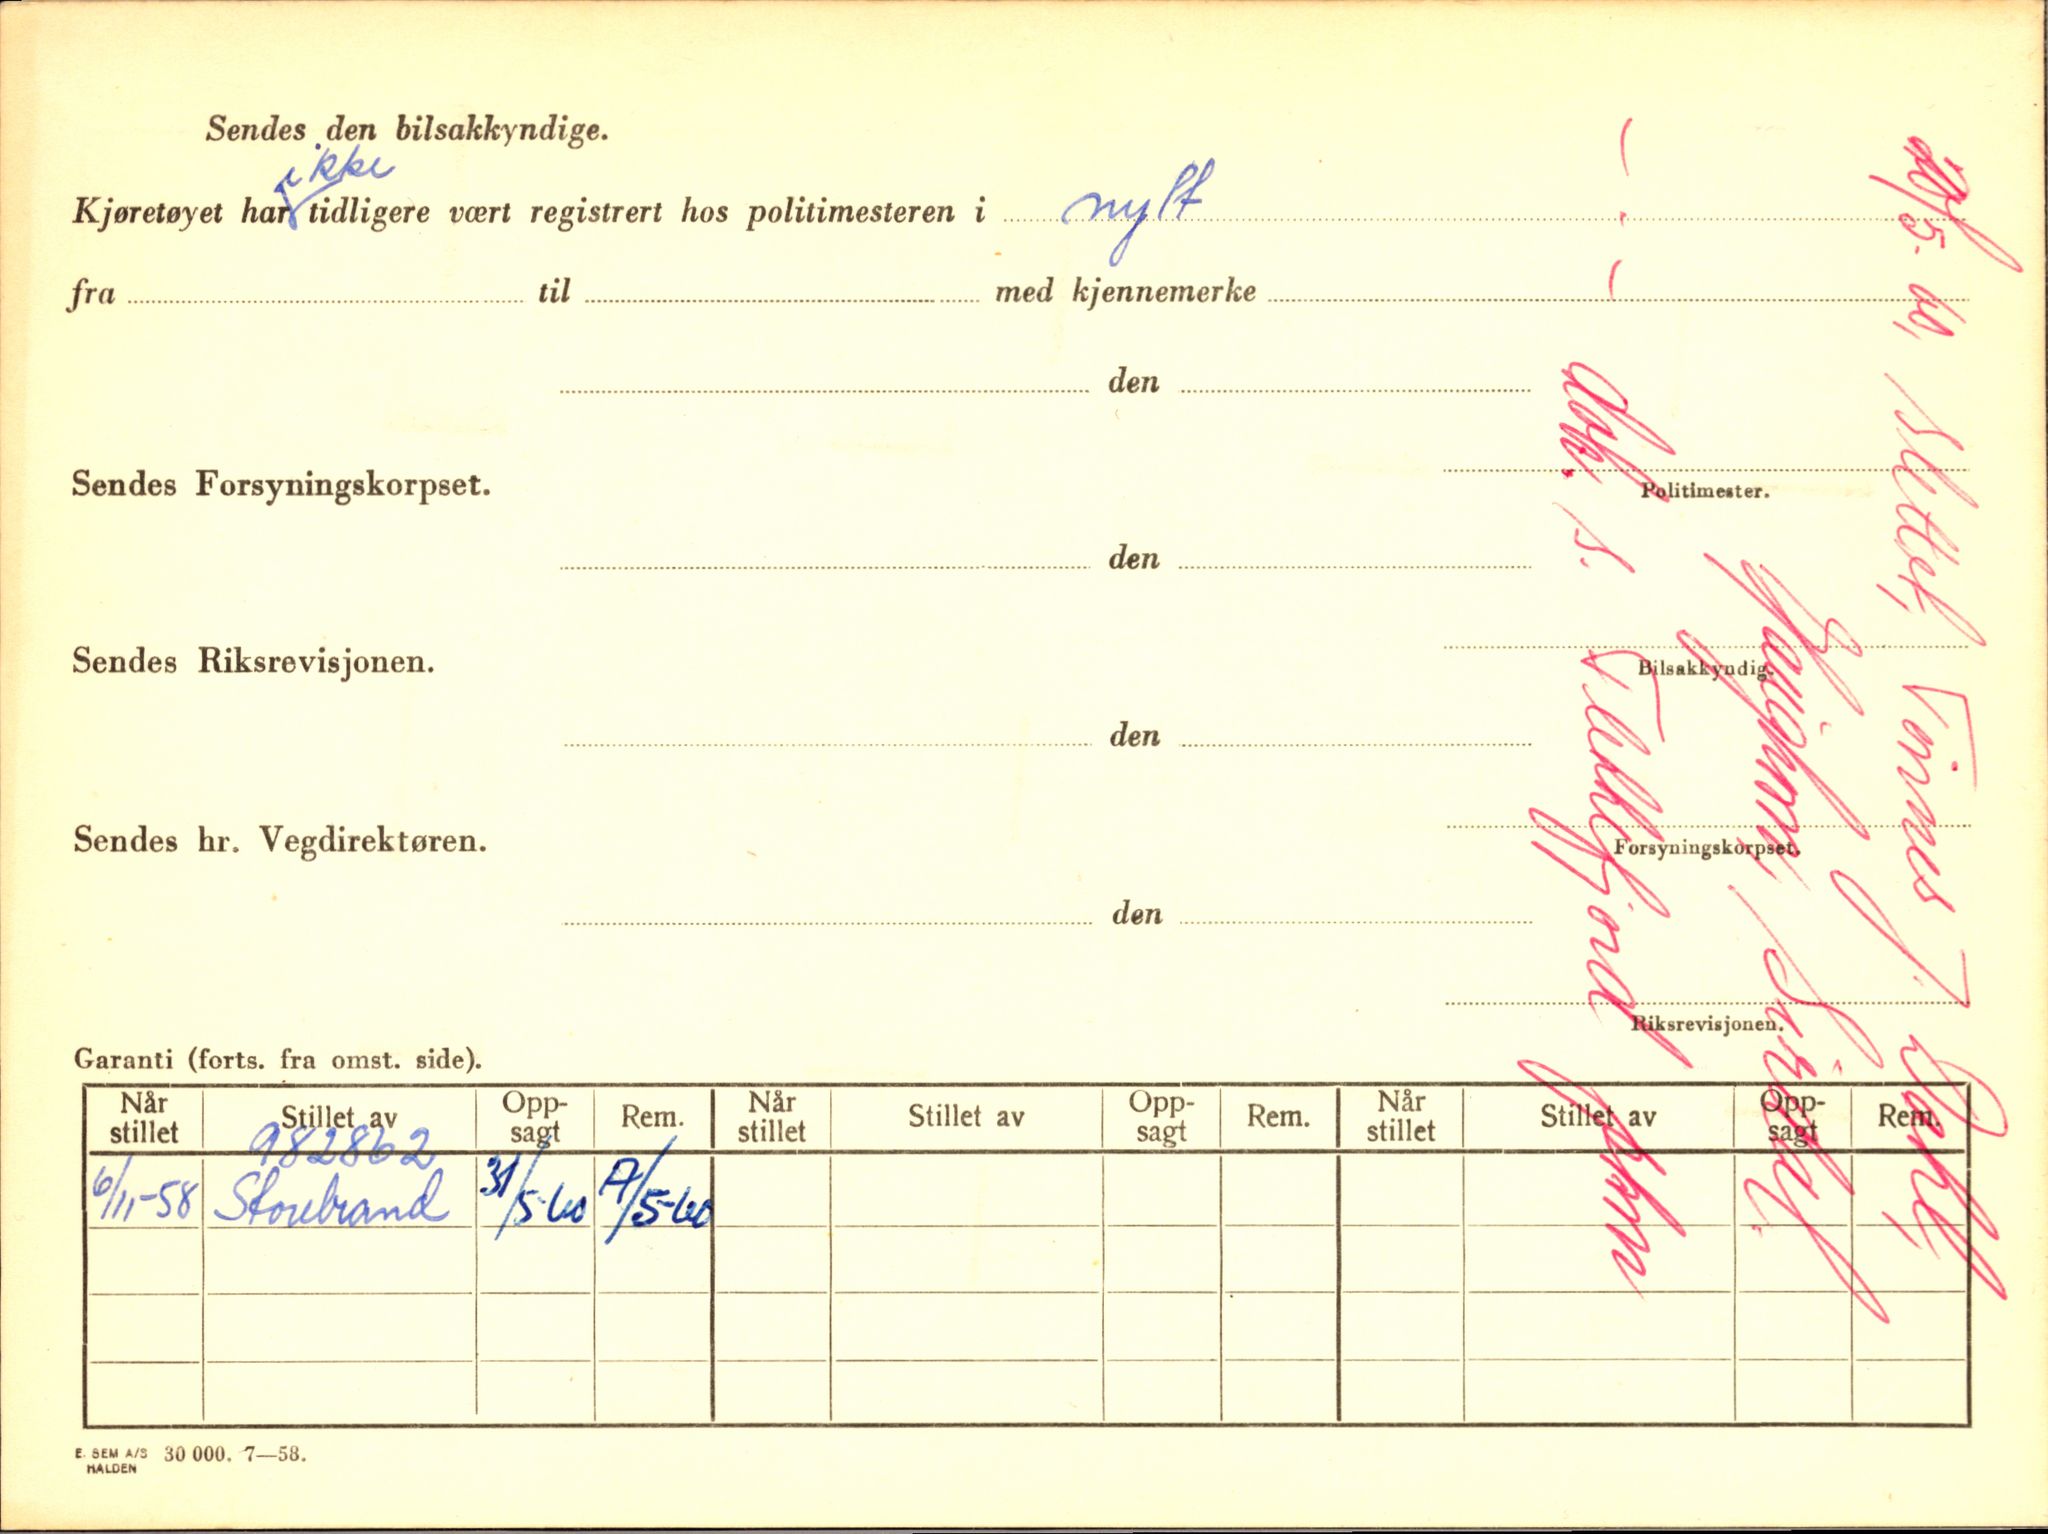 Sendes den bilsakkyndige.
ikke
Kjøretøyet har tidligere vært registrert hos politimesteren i nytt
fra til med kjennemerke
den
Politimester.
Sendes Forsyningskorpset.
den
Bilsakkyndig.
Sendes Riksrevisjonen.
den
Forsyningskorpset.
Sendes hr. Vegdirektøren.
den
Riksrevisjonen.
Garanti (forts. fra omst. side).
Når stillet Stillet av Opp-sagt Rem. Når stillet Stillet av Opp-sagt Rem. Når stillet Stillet av Opp-sagt Rem.
982862
6/11-58 Storebrand 31/5-60 A/5-60
E. SEM A/S HALDEN 30 000. 7—58.
Slettet,
Flekkefjord